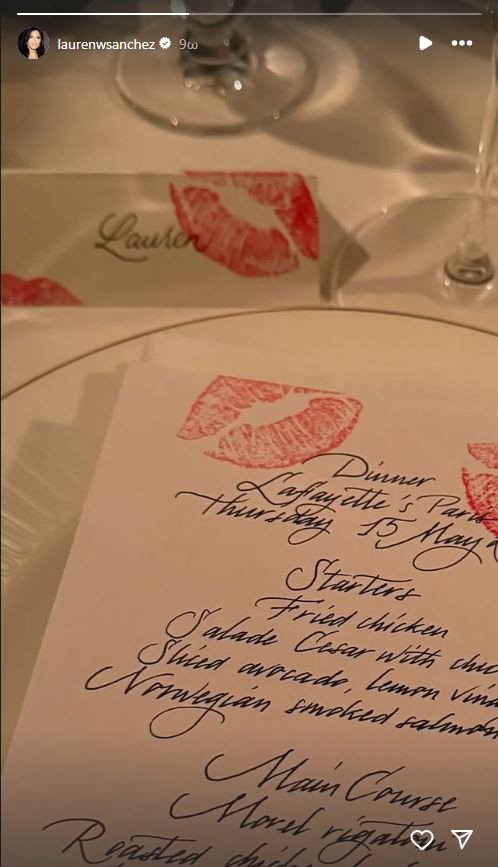 laurenwsanchez 9ω
Lauren
Dinner
Lafayette's Paris
Thursday 15 May
Starters
Fried chicken
Salade Cesar with
Sliced avocado, lemon
Norwegian smoked salmon
Main Course
Morel rigatoni
Roasted chicken